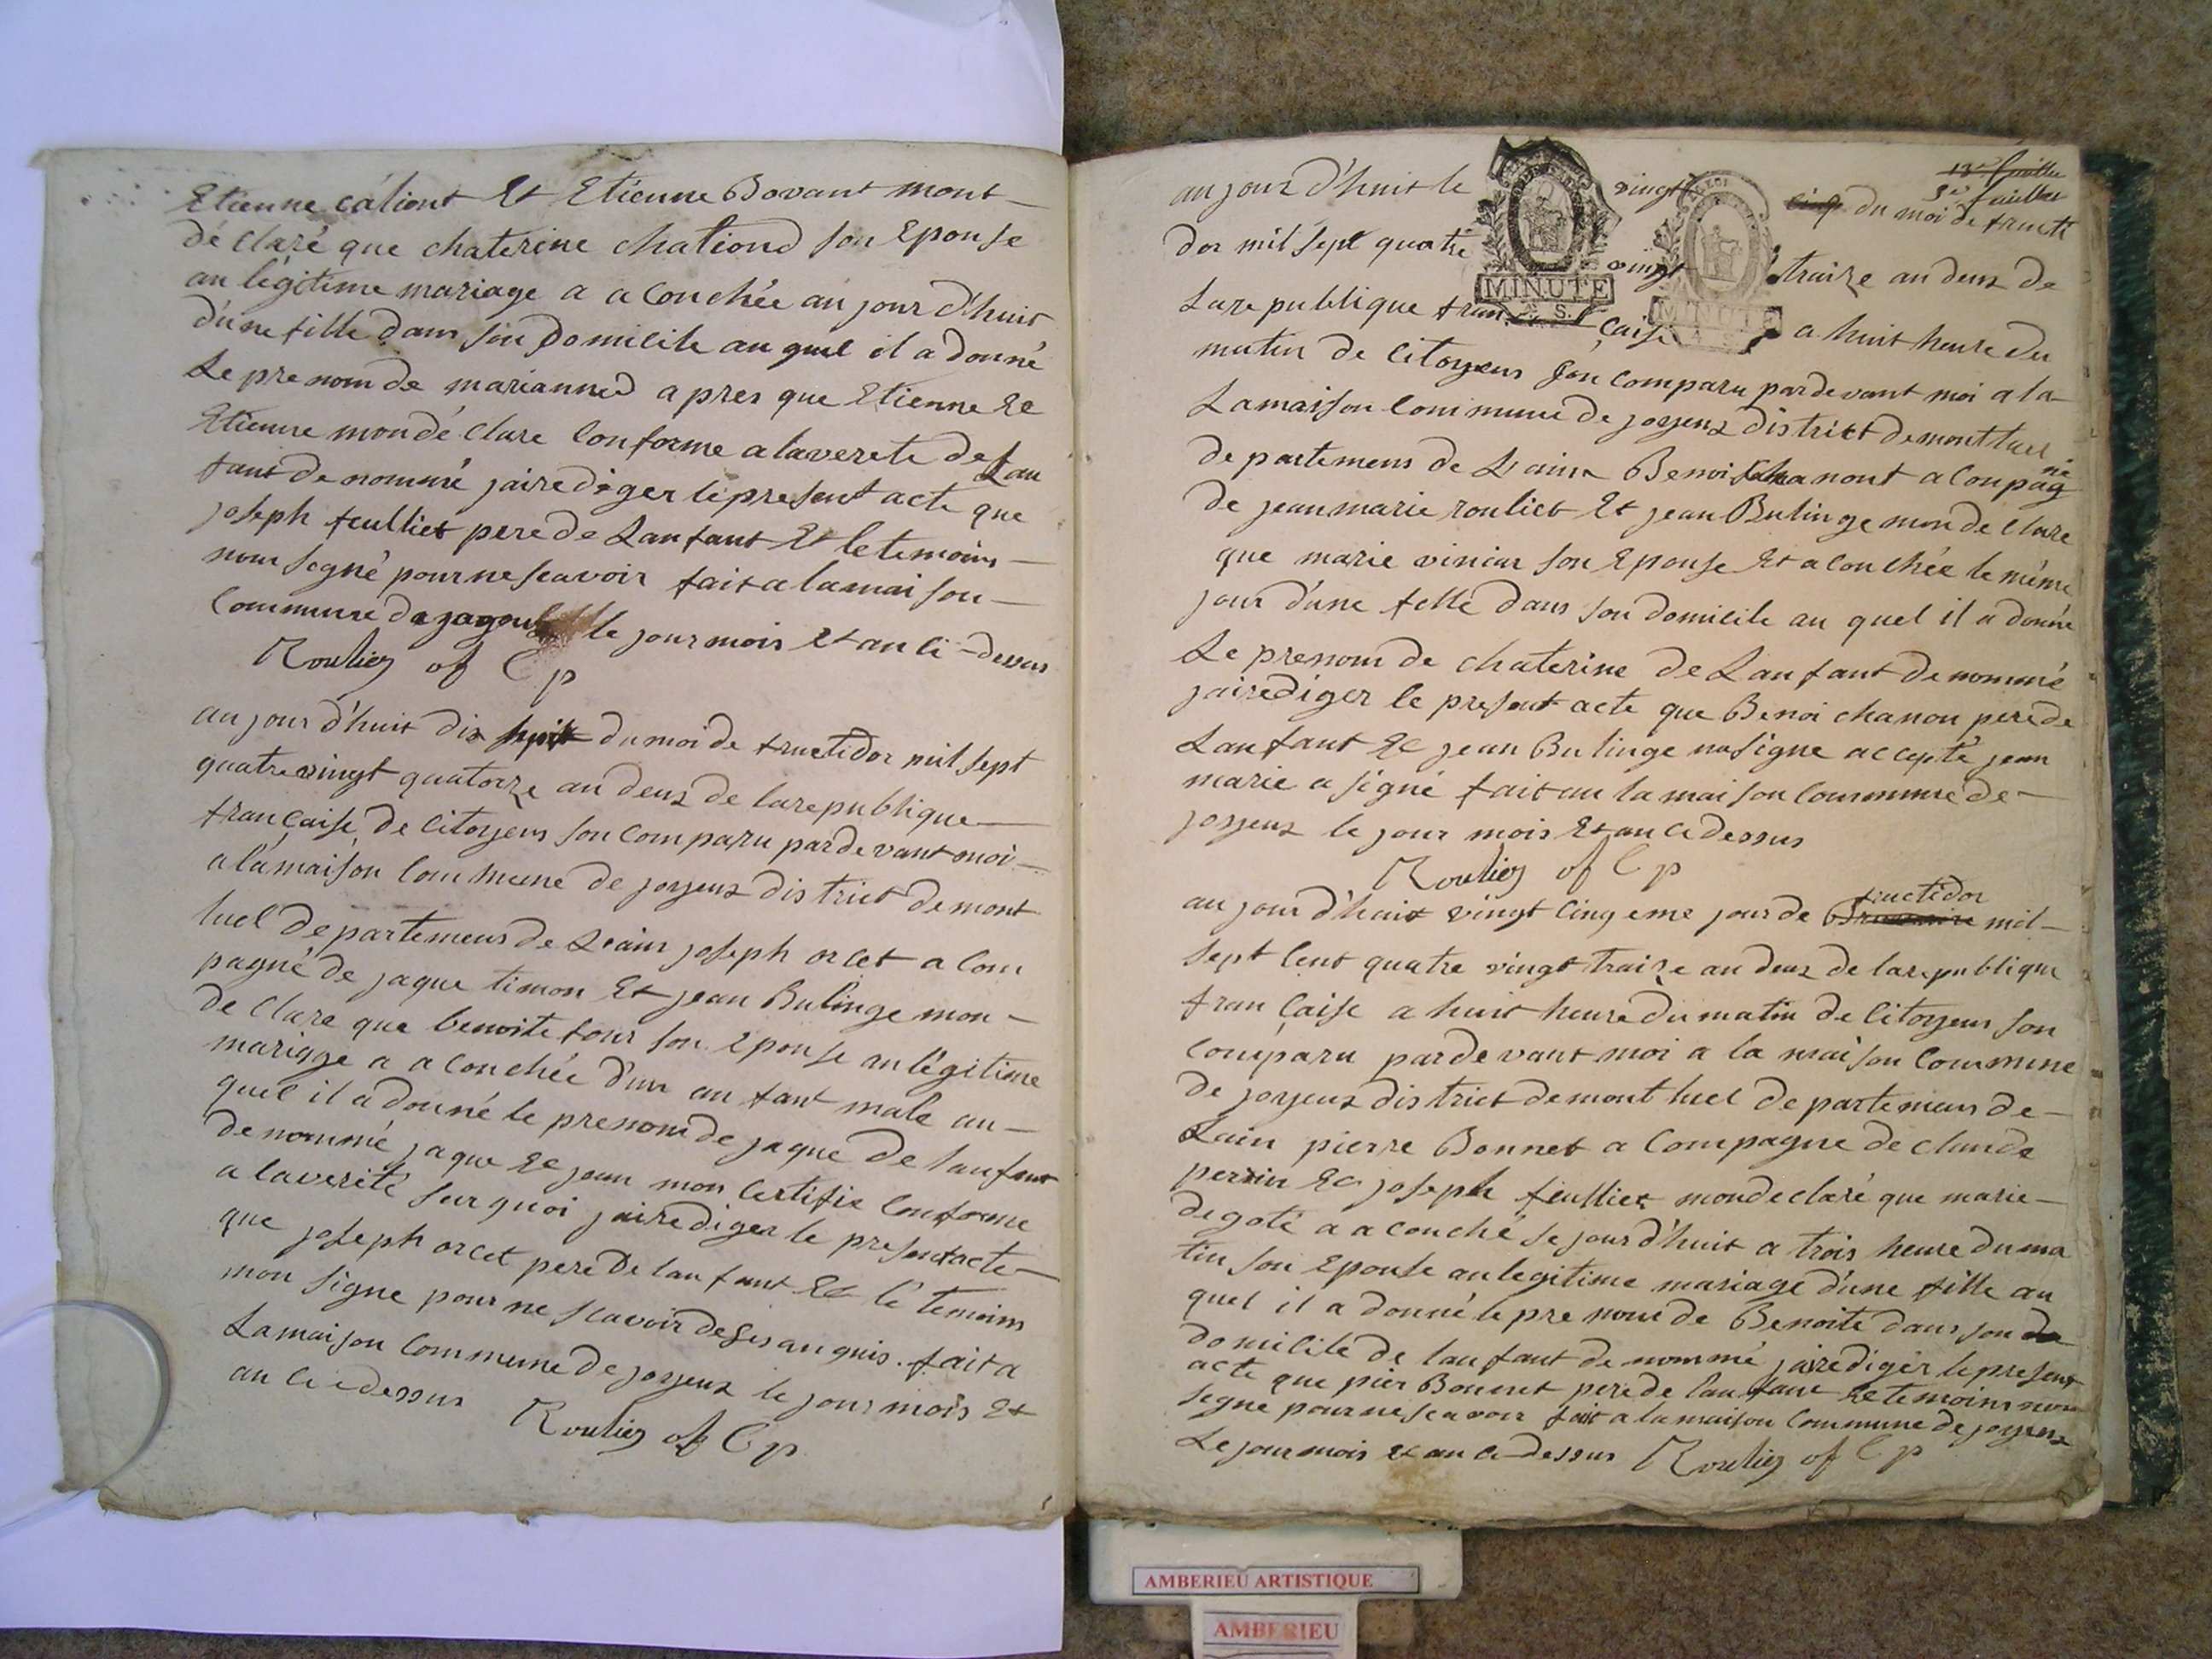 Etienne caliont Et Etienne Bovant mont
dé claré que chaterine chationd son Epouse
an legitime mariage a a Couchée au jour d'huit
d'une fille dans son Domicile au quel il a donné
Le prenom de marianned apres que Etienne Ee
Etienne mon dé clare Conforme a laverete de Lan
fant de nommé jairediger le present acte que
joseph feulliet pere de Lanfant Et letemoins
nom segné pour ne seavoir fait a lamaison
Commune de le jour mois Et an ci-dessus
Rouliez of C p
au jour d'huit dix du moi de fructidor mil sept
quatre vingt quatorze an deux de larepublique
francaise, de Citoyens son Comparu pardevant moi
a lámaison Commune de joyeux district demont
luel Departemens de L'ain joseph orcet a Com
pagné de jaque timon Et jean Bulinge mon
de Clare que benoite four son Epouse an légitime
mariage a a Couchée d'un anfant male au
quel il a donné le prenom de jaque De lanfant
denommé jaque Ee jean mon Certifie Conforme
a laverité surquoi jairediger le present acte
que joseph orcet pere De lanfant Ee lé temoins
mon signe pour ne scavoir de ses anquis. fait a
Lamaison Commune De joyeux le jour mois Et
an ci cdessus Rouliez of C p
13e feuillet
3e feuillet
au jour d'huit le vingt cinq du moi de fructi
dor mil sept quatre vingt traize an deux de
Larepublique francaise a huit heure du
matin de Citoyens son Comparu pardevant moi a la
Lamaison Commune de joyeux district demontluel
departemens de L'ain Benoi chanont a Conpagné
de jeanmarie rouliet Et jean Bulinge mon de Clare
que marie vinian son Epouse Et a Couchée le même
jour d'une felle dans son domicile au quel il a donné
Le prenom de chaterine de Lanfant denommé
jairediger le present acte que Benoi chanon perede
Lanfant Ee jean Bulinge nasigne accepté jean
marie a signé fait au la maison Commune de
joyeux le jour mois Et an ci dessus
Rouliez of C p
au jour d'huit vingt Cinq eme jour de fructidor mil
sept Cent quatre vingt traize an deux de larepublique
francaise a huit heure du matin de Citoyens son
Comparu pardevant moi a la maison Commune
de joyeux district demont luel departemens de
Lain pierre Bonnet a Compagne de claude
perrin Ee joseph feulliet mondeclaré que marie
degoté a a couché se jour d'huit a trois heure du ma
tin son Epouse anlegitime mariage d'une fille au
quel il a donné lepre nom de Benoite dans son do
domicile de lanfant de nommé jairediger le present
acte que pier Bonnet perede lanfant Ee temoins nom
segne pour ne seavoir fait a lamaison Commune de joyeux
Le jour mois Et an ci-dessus Rouliez of C p
MINUTE
A. S.
MINUTE
AMBERIEU ARTISTIQUE
AMBERIEU